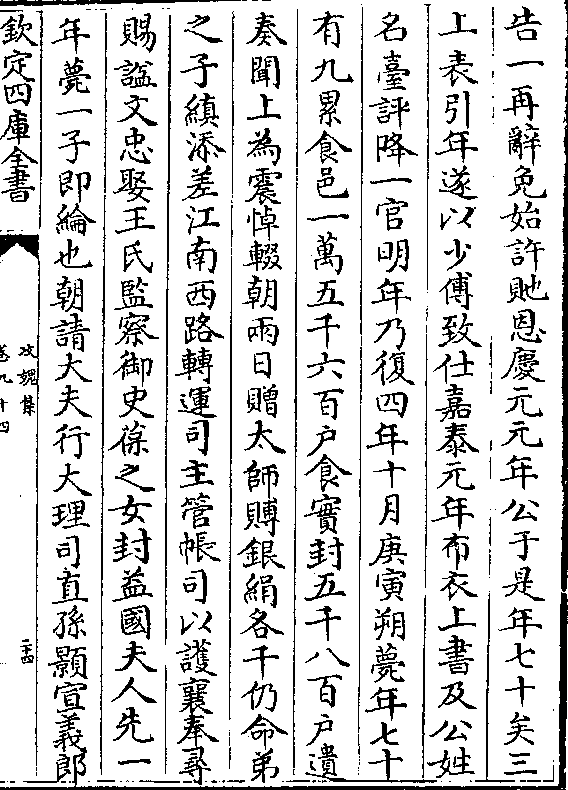 告一再辭免始許貤恩慶元元年公于是年七十矣三
上表引年遂以少傅致仕嘉泰元年布衣上書及公姓
名臺評降一官明年乃復四年十月庚寅朔薨年七十
有九累食邑一萬五千六百户食實封五千八百户遺
奏聞上為震悼輟朝兩日贈太師賻銀絹各千仍命弟
之子縝添差江南西路轉運司主管帳司以護襄奉尋
賜謚文忠娶王氏監察御史葆之女封益國夫人先一
年薨一子即綸也朝請大夫行大理司直孫顥宣義郎
欽定四庫全書
攻媿集
卷九十四
二十四